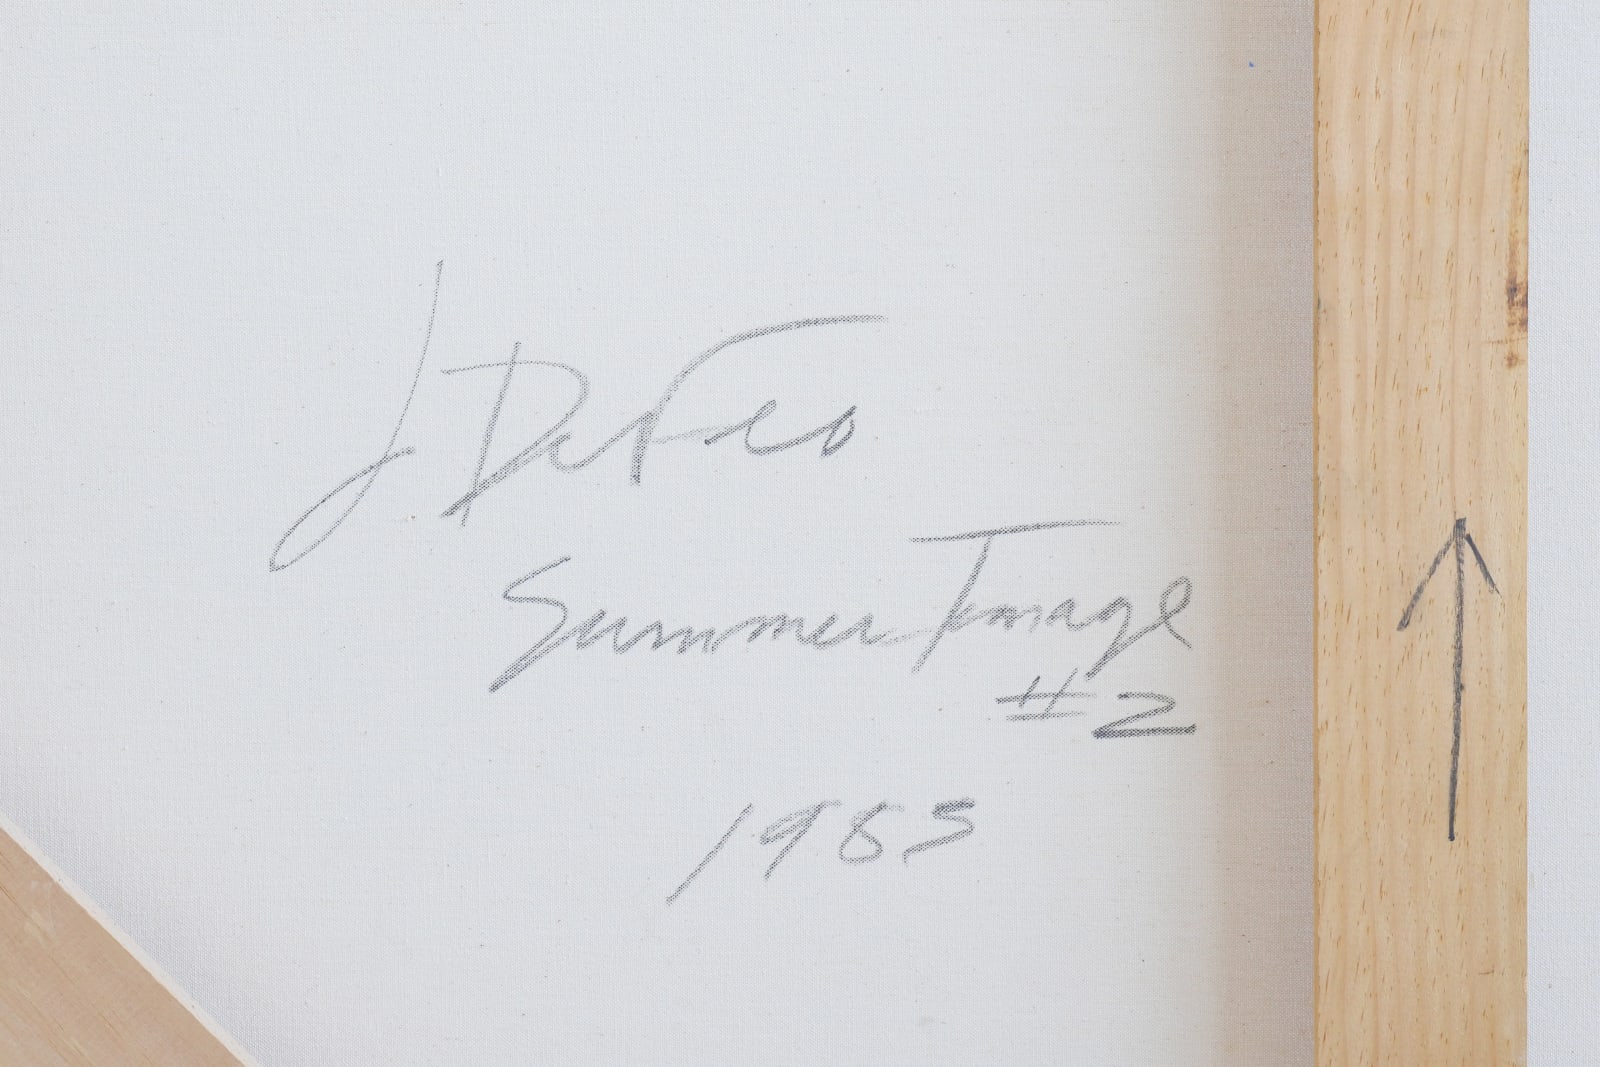 J DeFeo
Summer Image
#2
1985